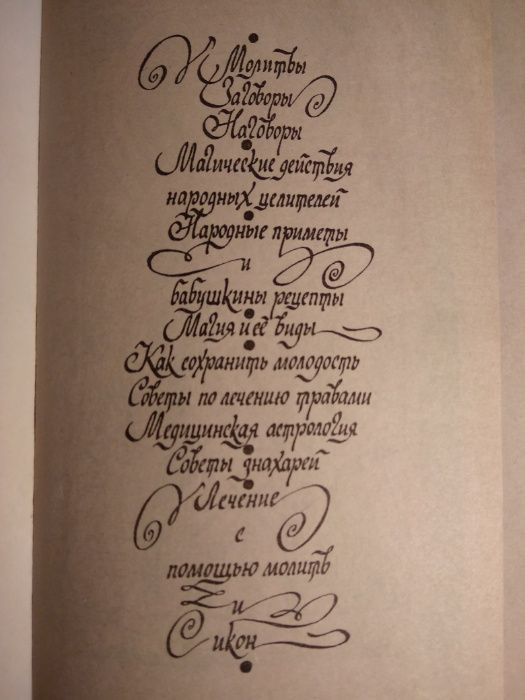 Молитвы
Заговоры
Наговоры
Магические действия
народных целителей
Народные приметы
и
бабушкины рецепты
Магия и её виды
Как сохранить молодость
Советы по лечению травами
Медицинская астрология
Советы знахарей
Лечение
с
помощью молитв
и
икон